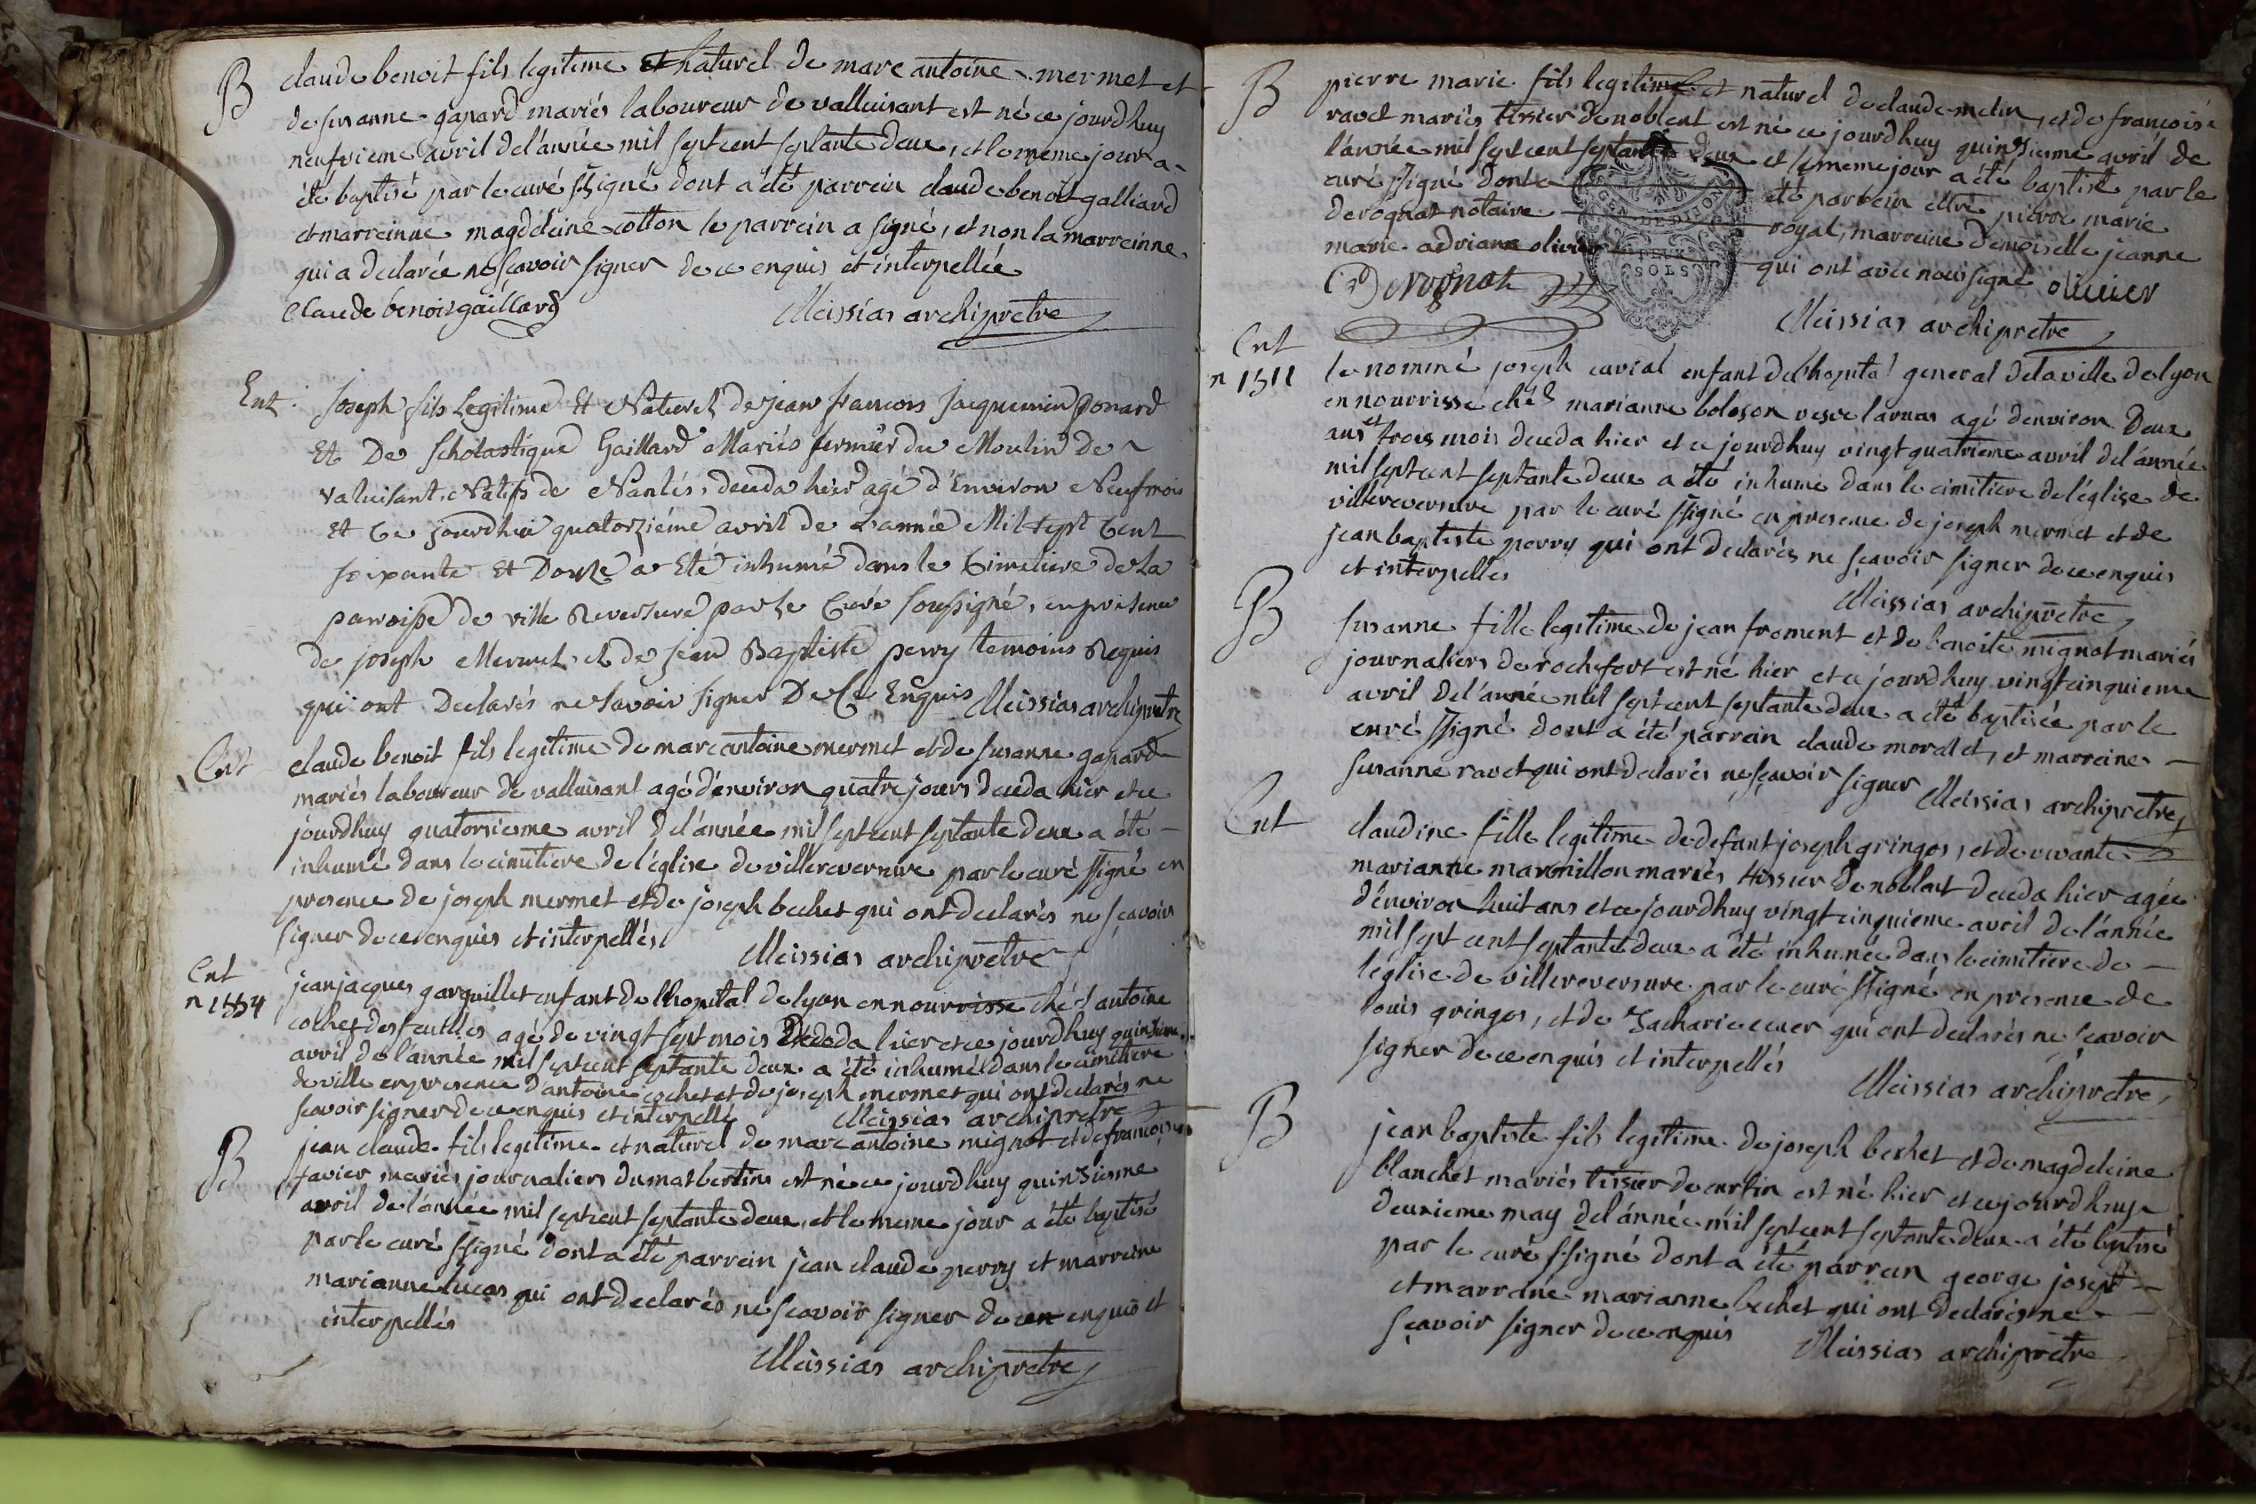 B claude benoit fils legitime et naturel de marc antoine mermet et
de susanne gapard mariés laboureur de valluisant est né ce jourdhuy
neufvieme avril del'année mil sept cent septante deux, et le meme jour a
été baptisé par le curé ssigné dont a été parrein claude benoit galliard
et marreinne magdeleine cotton le parrein a signé, et non la marreinne
qui a declarée ne scavoir signer de ce enquis et interpellée
Claude benoit gaillard Meissias archipretre
Ent. Joseph fils Legitime Et Naturel de jean francois jacquemin ponard
Et De Scholastique Gaillard Mariés fermier du Moulin de
valuisant Natifs de Nantés, deceda hier agé d'Environ Neuf mois
Et Ce jourdhui quatorziéme avril de L'année Mil sept Cent
soixante Et Douze a Eté inhumé dans le Cimetiere de La
paroisse de ville Reversure par Le Curé soussigné, en presence
de joseph Mermet, et de jean Baptiste perry temoins Requis
qui ont Declarés ne savoir signer De Ce Enquis Meissias archipretre
Ent claude benoit fils legitime de marc antoine mermet et de susanne gapard
mariés laboureur de valluisant agé d'environ quatre jours deceda hier et ce
jourdhuy quatorsieme avril del'année mil sept cent septante deux a été
inhumé dans le cimitiere de l'église de villereversure par le curé ssigné en
presence de joseph mermet et de joseph bechet qui ont declarés ne sçavoir
signer de ce enquis et interpellés Meissias archipretre
Ent jean jacques garguillet enfant de l'hopital de lyon en nourrisse chés antoine
n 1554 cochet des feuilles agé de vingt sept mois deceda hier et ce jourdhuy quinsieme
avril de l'année mil sept cent septante deux a été inhumé dans le cimitiere
de ville en presence d'antoine cochet et de joseph mermet qui ont declarés ne
scavoir signer de ce enquis et interpellé Meissias archipretre
B jean claude fils legitime et naturel de marc antoine mignot et de francoise
favier mariés journaliers du mas bertin est né ce jourdhuy quinsieme
avril de l'année mil sept cent septante deux, et le meme jour a été baptisé
par le curé ssigné dont a été parrein jean claude perry et marreine
marianne lucas qui ont declarés ne scavoir signer de ce enquis et
interpellés
Meissias archipretre
B pierre marie fils legitime et naturel de claude melin, et de francoise
ravet mariés tissier de noblent est né ce jourdhuy quinsieme avril de
l'année mil sept cent septante deux et le meme jour a été baptisé par le
curé ssigné dont a été parrein pierre marie
derognat notaire royal, marreine demoiselle jeanne
marie adriane olivier qui ont avec nous signé olivier
Derognat
GEN. DE DIJON
SOLS
Meissias archipretre
Ent le nommé joseph cuvial enfant de l'hopital general de la ville de lyon
n 1511 en nourrisse chés marianne boloson vesve larnas agé d'environ deux
ans et trois mois deceda hier et ce jourdhuy vingt quatrieme avril del'année
mil sept cent septante deux a été inhumé dans le cimitiere de l'église de
villereversure par le curé ssigné en presence de joseph mermet et de
jean baptiste perry qui ont declarés ne sçavoir signer de ce enquis
et interpellés
Meissias archipretre
B susanne fille legitime de jean froment et de benoite mignot mariés
journaliers de rochefort est né hier et ce jourdhuy vingt cinquieme
avril de l'année mil sept cent septante deux a été baptisée par le
curé ssigné dont a été parrein claude moralet, et marreine
susanne ravet qui ont declarés ne sçavoir signer Meissias archipretre
Ent claudine fille legitime de defunt joseph gringos, et de vivante
marianne marmillon mariés tissier de noblent deceda hier agée
d'environ huit ans et ce jourdhuy vingt cinquieme avril de l'année
mil sept cent septante deux a été inhumée dans le cimitiere de
l'eglise de villereversure par le curé ssigné en presence de
louis gringos, et de Zacharie cuer qui ont declarés ne scavoir
signer de ce enquis et interpellés
Meissias archipretre
B jean baptiste fils legitime de joseph bechet et de magdeleine
blanchet mariés tissier de curtin est né hier et ce jourdhuy
deuxieme may del'année mil sept cent septante deux a été baptisé
par le curé ssigné dont a été parrein george joseph
et marrane marianne bechet qui ont declarés ne
sçavoir signer de ce enquis Meissias archipretre